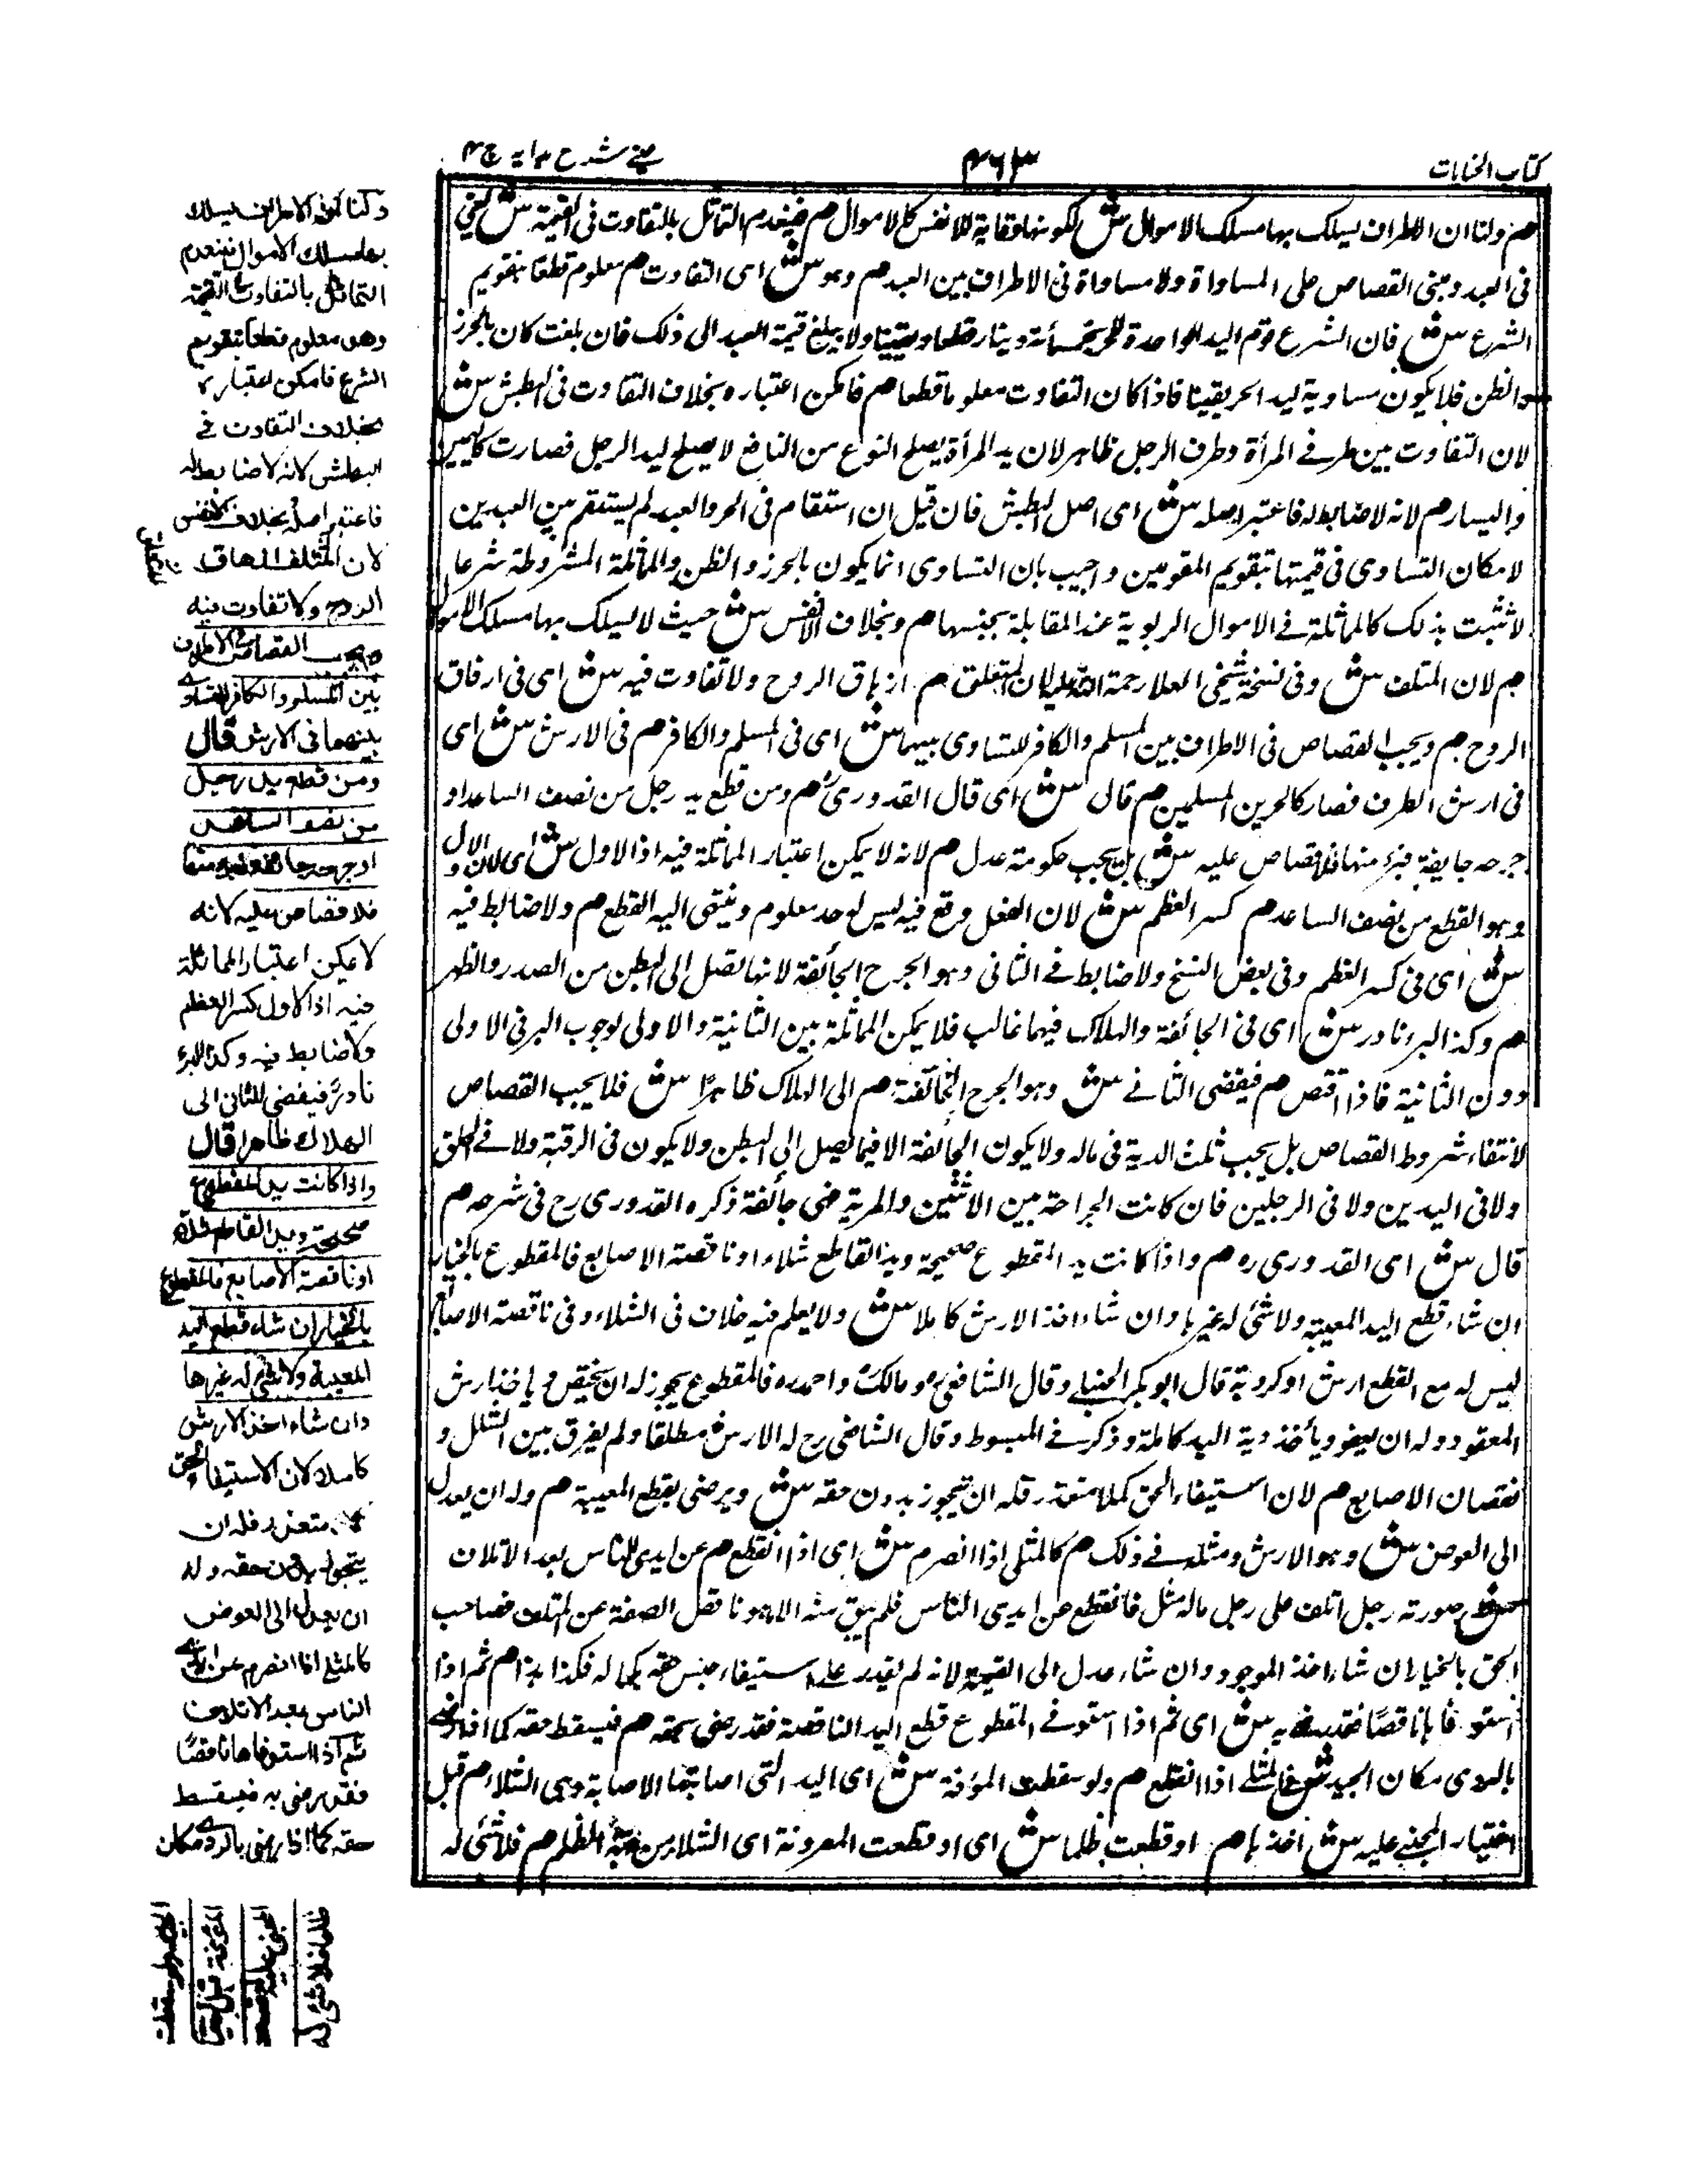 كتاب الجنايات
٤٦٣
عيني شرح هدايه ج ٤
م ولنا ان الاطراف يسلك بها مسلك الاموال ش لكونها وقاية للانفس كالاموال م فينعدم التماثل بالتفاوت في القيمة ش يعني
في العبد ومبنى القصاص على المساواة ولا مساواة في الاطراف بين العبد م وهو ش اى التفاوت م معلوم قطعا بتقويم
الشرع ش فان الشرع قوم اليد الواحدة للحر بخمسمأئة دينار قطعا ويقينا ولا يبلغ قيمة العبد الى ذلك فان بلغت كان بالحرز
والظن فلا يكون مساوية ليد الحر يقينا فاذا كان التفاوت معلوما قطعا م فامكن اعتباره بخلاف التفاوت في البطش ش
لان التفاوت بين طرفي المرأة وطرف الرجل ظاهر لان يد المرأة يصلح النوع من النافع لا يصلح ليد الرجل فصارت كاليمين
واليسار م لانه لا ضابط له فاعتبر اصله ش اى اصل البطش فان قيل ان استقام في الحر والعبد لم يستقم بين العبدين
لامكان التساوى في قيمتها بتقويم المقومين واجيب بان التساوى انما يكون بالحرز والظن والمماثلة المشروطة شرعا
لا تثبت بذلك كالمماثلة في الاموال الربوية عند المقابلة بجنسها م وبخلاف الانفس ش حيث لا يسلك بها مسلك الاموال
م لان المتلف ش وفي نسخة شيخى العلا رحمة الله عليه لان المتعلق م ازهاق الروح ولا تفاوت فيه ش اى في ازهاق
الروح م ويجب القصاص في الاطراف بين المسلم والكافر للتساوى بينهما ش اى في المسلم والكافر م في الارش ش اى
في ارش الطرف فصار كالحرين المسلمين م قال ش اى قال القدورى م ومن قطع يد رجل من نصف الساعد او
جرحه جايفة فبرء منها فلا قصاص عليه ش بل يجب حكومة عدل م لانه لا يمكن اعتبار المماثلة فيه اذ الاول ش اى لان الاول
وهو القطع من نصف الساعد م كسر العظم ش لان الفعل وقع فيه ليس له حد معلوم وينتهى اليه القطع م ولا ضابط فيه
ش اى في كسر العظم وفى بعض النسخ ولا ضابط في الثانى وهو الجرح الجائفة لانها تصل الى البطن من الصدر والظهر
م وكذا البرء نادر ش اى في الجائفة والهلاك فيها غالب فلا يمكن المماثلة بين الثانية والاولى لوجوب البر في الاولى
دون الثانية فاذا اقتص م فيفضى الثاني ش وهو الجرح الجائفة م الى الهلاك ظاهرًا ش فلا يجب القصاص
لانتفاء شروط القصاص بل يجب ثلث الدية في ماله ولا يكون الجائفة الا فيما يصل الى البطن ولا يكون في الرقبة ولا في الحلق
ولا في اليدين ولا في الرجلين فان كانت الجراحة بين الانثيين والمرية فهى جائفة ذكره القدورى رح في شرحه م
قال ش اى القدورى ره م واذا كانت يد المقطوع صحيحة ويد القاطع شلاء او ناقصة الاصابع فالمقطوع بالخيار
ان شاء قطع اليد المعيبة ولا شئ له غيرها وان شاء اخذ الارش كاملا ش ولا يعلم فيه خلاف في الشلاء وفي ناقصة الاصابع
ليس له مع القطع ارش او كرؤية قال ابو بكر الحنبلي وقال الشافعى ومالك واحمد ره فالمقطوع يجوز له ان يقتص و ياخذ ارش
المعقود وله ان يعفو ويأخذ دية اليد كاملة وذكر في المبسوط وقال الشافعى رح له الارش مطلقا ولم يفرق بين الشلل و
نقصان الاصابع م لان استيفاء الحق كملا متعذر فله ان يتجوز بدون حقه ش ويرضى بقطع المعيبة م وله ان يعدل
الى العوض ش وهو الارش ومثله في ذلك م كالمثلى اذا انصرم ش اى اذا انقطع م عن ايدى الناس بعد الاتلاف
ش صورته رجل اتلف على رجل ماله مثل فانقطع عن ايدى الناس فلم يبق منه الا ما هو ناقص الصفة عن المتلف فصاحب
الحق بالخيار ان شاء اخذ الموجود وان شاء عدل الى القيمة لانه لم يقدر على استيفاء جنس حقه كما له فكذا هذا م ثم اذا
استوفاها ناقصًا فقد رضى به ش اى ثم اذا استوفى المقطوع قطع اليد الناقصة فقد رضى بحقه م فيسقط حقه كما اذا رضى
بالردى مكان الجيد ش في المثلى اذا انقطع م ولو سقطت المؤفة ش اى اليد التى اصابتها الاصابة وهى الشلاء م قبل
اختيار المجنى عليه ش اخذها م او قطعت ظلما ش اى او قطعت المعروفة اى الشلاء من جهة الظلم م فلا شئ له
ولنا ان الاطراف يسلك
بها مسلك الاموال فينعدم
التماثل بالتفاوت في القيمة
وهو معلوم قطعا بتقويم
الشرع فامكن اعتباره
بخلاف التفاوت في
البطش لانه لا ضابط له
فاعتبر اصله بخلاف الانفس
لان المتلف ازهاق
الروح ولا تفاوت فيه
ويجب القصاص في الاطراف
بين المسلم والكافر للتساوى
بينهما في الارش قال
ومن قطع يد رجل
من نصف الساعد
او جرحه جائفة فبرء منها
فلا قصاص عليه لانه
لا يمكن اعتبار المماثلة
فيه اذ الاول كسر العظم
ولا ضابط فيه وكذا البرء
نادر فيفضى الثانى الى
الهلاك ظاهرا قال
واذا كانت يد المقطوع
صحيحة ويد القاطع شلاء
او ناقصة الاصابع فالمقطوع
بالخيار ان شاء قطع اليد
المعيبة ولا شئ له غيرها
وان شاء اخذ الارش
كاملا لان الاستيفاء الحق
كملا متعذر فله ان
يتجوز بدون حقه وله
ان يعدل الى العوض
كالمثلى اذا انصرم عن ايدى
الناس بعد الاتلاف
ثم اذا استوفاها ناقصًا
فقد رضى به فيسقط
حقه كما اذا رضى بالردى مكان
الجيد ولو سقطت
المؤفة قبل اختيار
المجنى عليه او قطعت
ظلما فلا شئ له